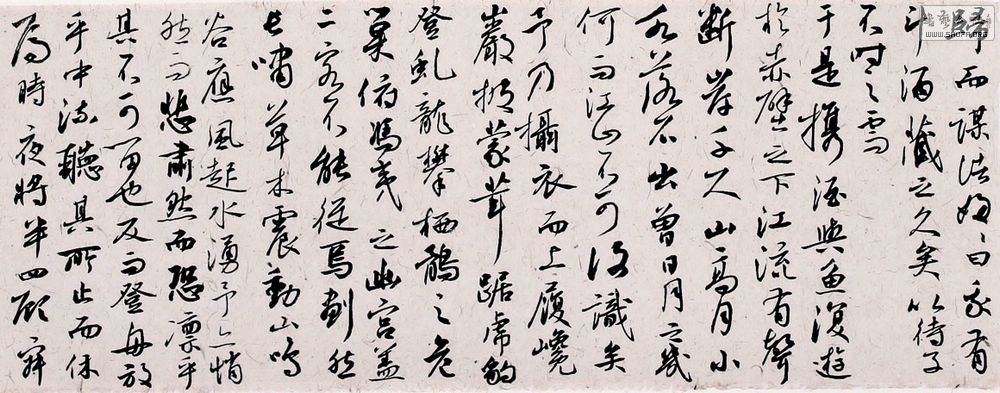 歸而謀諸婦婦曰我有
斗酒藏之久矣以待子
不時之需
于是攜酒與魚復遊
於赤壁之下江流有聲
斷岸千尺山高月小
水落石出曾日月之幾
何而江山不可復識矣
予乃攝衣而上履巉
巖披蒙茸踞虎豹
登虬龍攀栖鶻之危
巢俯馮夷之幽宮蓋
二客不能從焉劃然
長嘯草木震動山鳴
谷應風起水湧予亦悄
然而悲肅然而恐凛乎
其不可留也反而登舟放
乎中流聽其所止而休
焉時夜將半四顧寂